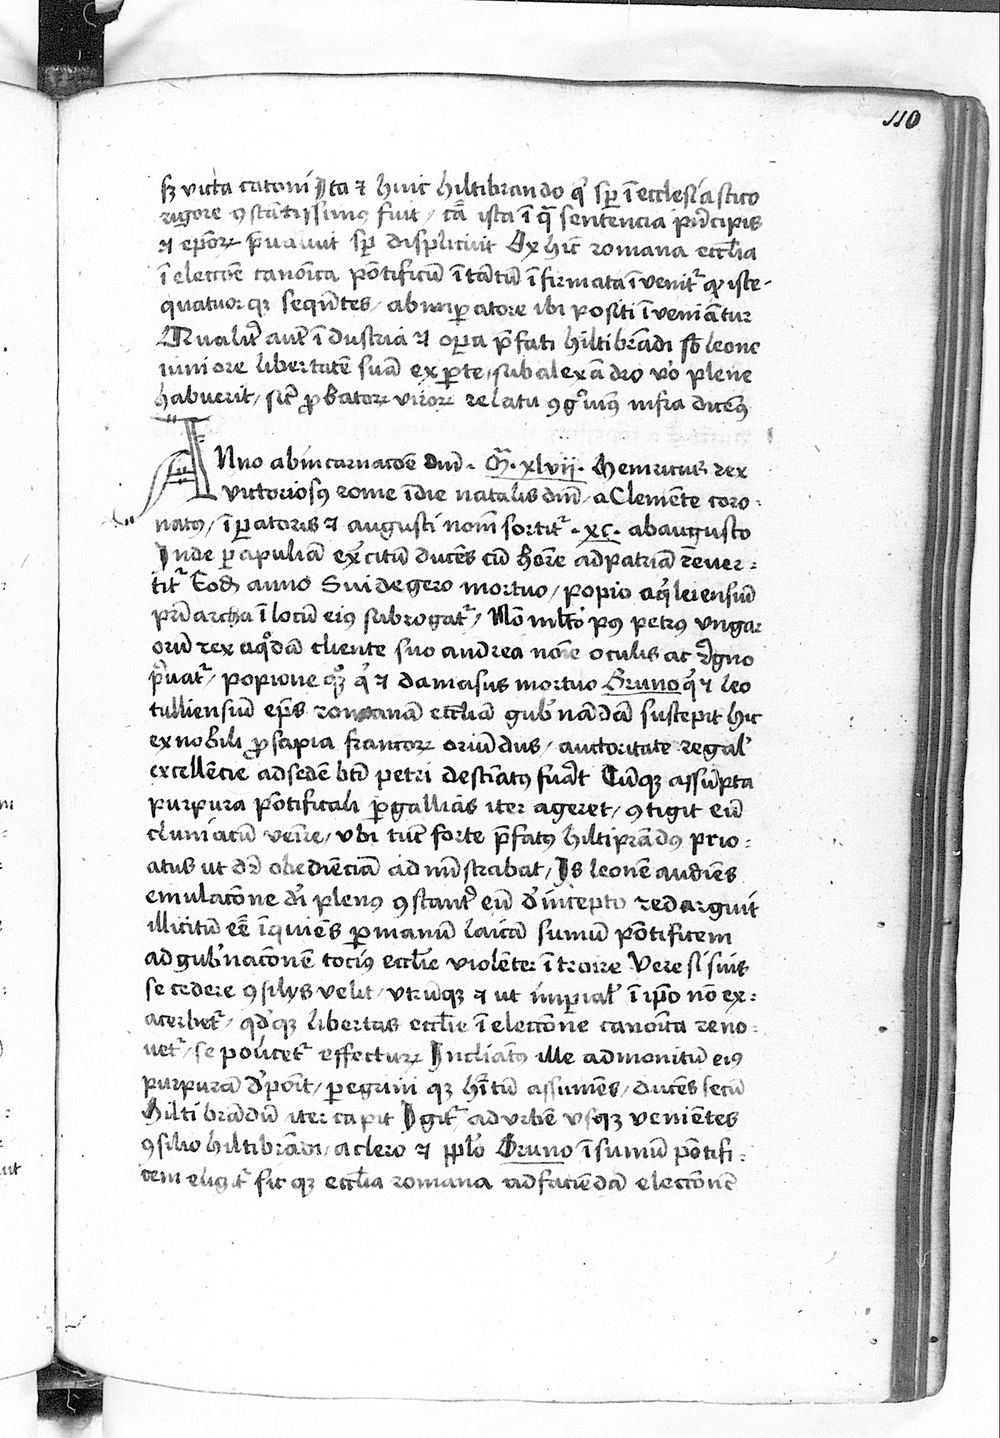 110
sꝫ victa catoni Ita ⁊ huic hiltibrando qͥ sꝑ ī ecclesiastico
rigore ꝯstātissimꝰ fuit / cā ista ī q̄ sentencia pͥncipis
⁊ epōꝝ p̄valuit sꝑ displicuit Ex hic romana ecclīa
ī eleccōe canonīca pōtificū ī tātū īfirmata īvenitᷣ qͩ iste
quatuorqꝫ seqn̄tes / ab imꝑatore ibi positi īveniātur
Qualitᷣ autē īdustria ⁊ oꝑa p̄fati hiltibrādi sb̄ leone
iuniore libertatē suā ex ꝑte / sub alexādro vͦo plene
habuerit / sicͭ ꝓbatoꝝ viroꝝ relatu ꝯgͦuimꝰ infra dicemꝰ
Anno ab incarnacōe dnī · M̄ · xlvii · Heinricus rex
victoriosꝰ rome ī die natalis dnī / a Clemēte coro꞊
natꝰ / īꝑatoris ⁊ augusti nomē sortitᷣ · xc · ab augusto
Inde ꝑ apuliā exͬcitū ducēs cū honͦre ad patriā reuer꞊
titᷣ Eodē anno Suidegero mortuo / popio aqͥleiensiū
pͣriarcha ī locū eiꝰ subrogatᷣ / Nō mlͭo pꝰ petrꝰ vngar
orū rex aqͦdā cliente suo andrea noīe oculis ac rͤgno
pͥvatᷣ / popione qꝫ qͥ ⁊ damasus mortuo Bruno qͥ ⁊ leo
tulliensiū ep̄s romanā ecclīam gub̓nādā suscepit hic
ex nobili ꝓsapia francoꝝ oriūdus / auctoritate regal̓
excellēcie ad sedē btī petri destīatꝰ fuāt Cūqꝫ assūpta
purpura pōtificali ꝑ gallias iter ageret / ꝯtigit eū
cluniacū venīre / vbi tūc forte p̄fatꝰ hiltiprādꝰ prio꞊
atus ut dͬ obediēciā admīstrabat / Is leonē audiēs
emulacōne dī plenꝰ ꝯstantᷣ eū dͤ incepto redarguit
illicitū eē īquiēs ꝑ manū laicā sumū pōtificem
ad gub̓nacōnē tociꝰ ecclīe violēter ītroire Vere si suis
se credere ꝯsilys velit / vtrūqꝫ ⁊ ut imꝑial̓ ī ip̄o nō ex꞊
acerbetᷣ / qͩqꝫ libertas ecclīe ī eleccōne canonīca reno꞊
uetᷣ / se pollicetᷣ effecturꝝ Inclīatꝰ ille ad monitū eiꝰ
purpurā dͤponīt / ꝑegrini qꝫ hītū assumēs / ducēs secū
hiltibrādū iter capit Igitᷣ ad vrbē vsqꝫ veniētes
ꝯsilio hiltibrādi / a clero ⁊ ppl̓o Bruno ī sumū pōtifi꞊
cem eligitᷣ sicqꝫ ecclīa romana ad faciēdā eleccōnē